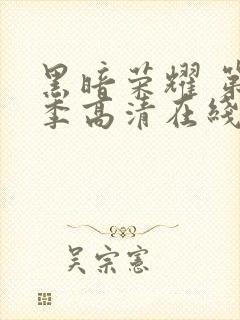 黑暗荣耀 第
季高清在线
吴宗憲